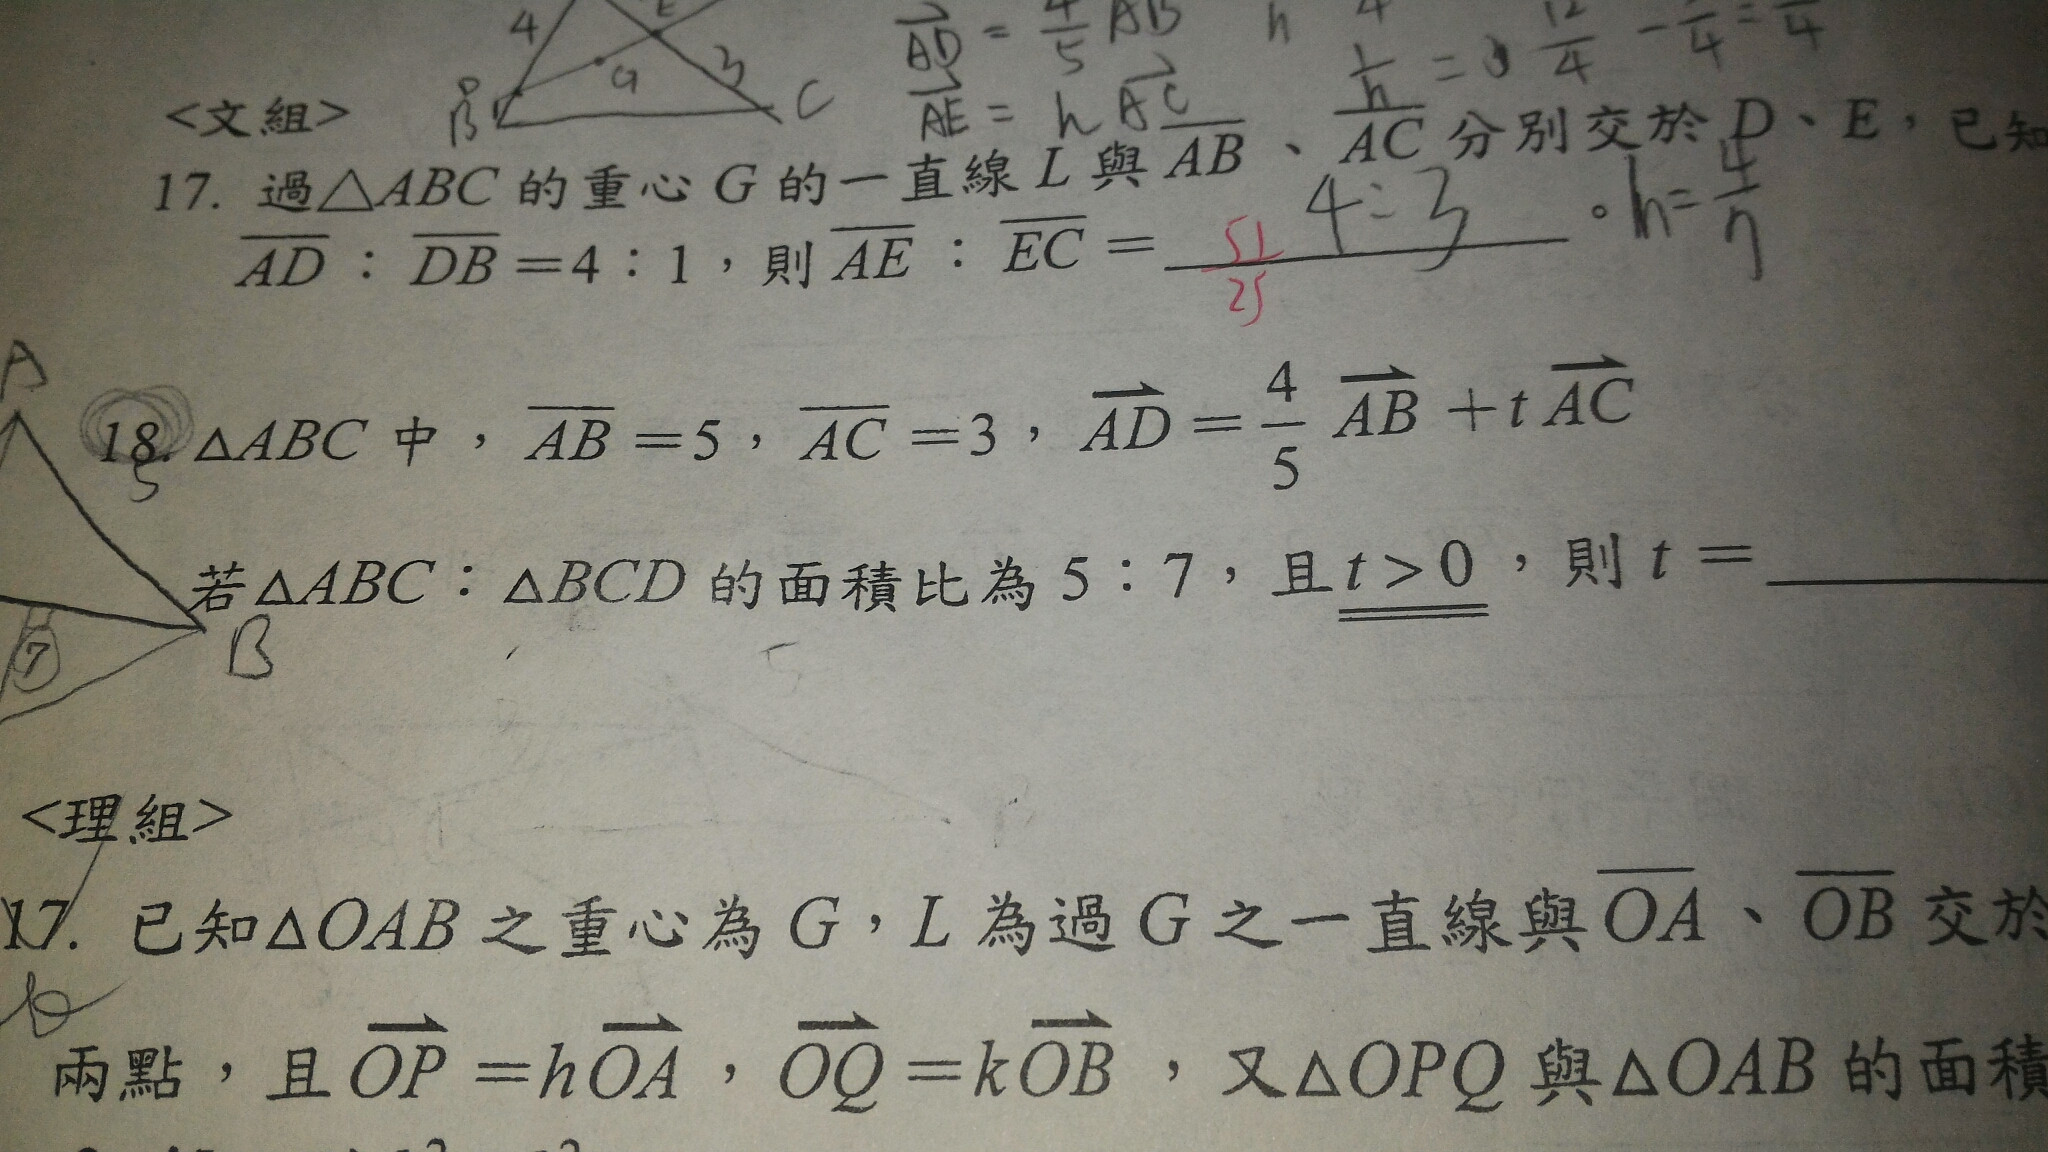 4 E
G 3
B C
AD = 4/5 AB
AE = h AC
<文組>
17. 過△ABC 的重心 G 的一直線 L 與 AB、AC 分別交於 D、E，已知
AD：DB＝4：1，則 AE：EC＝ 4:3 。h=4/7
51
25
A
18. △ABC 中，AB＝5，AC＝3，AD＝4/5 AB＋t AC
5
若△ABC：△BCD 的面積比為 5：7，且 t＞0，則 t＝
7
B
<理組>
17. 已知△OAB 之重心為 G，L 為過 G 之一直線與 OA、OB 交於
兩點，且 OP＝hOA，OQ＝kOB，又△OPQ 與△OAB 的面積